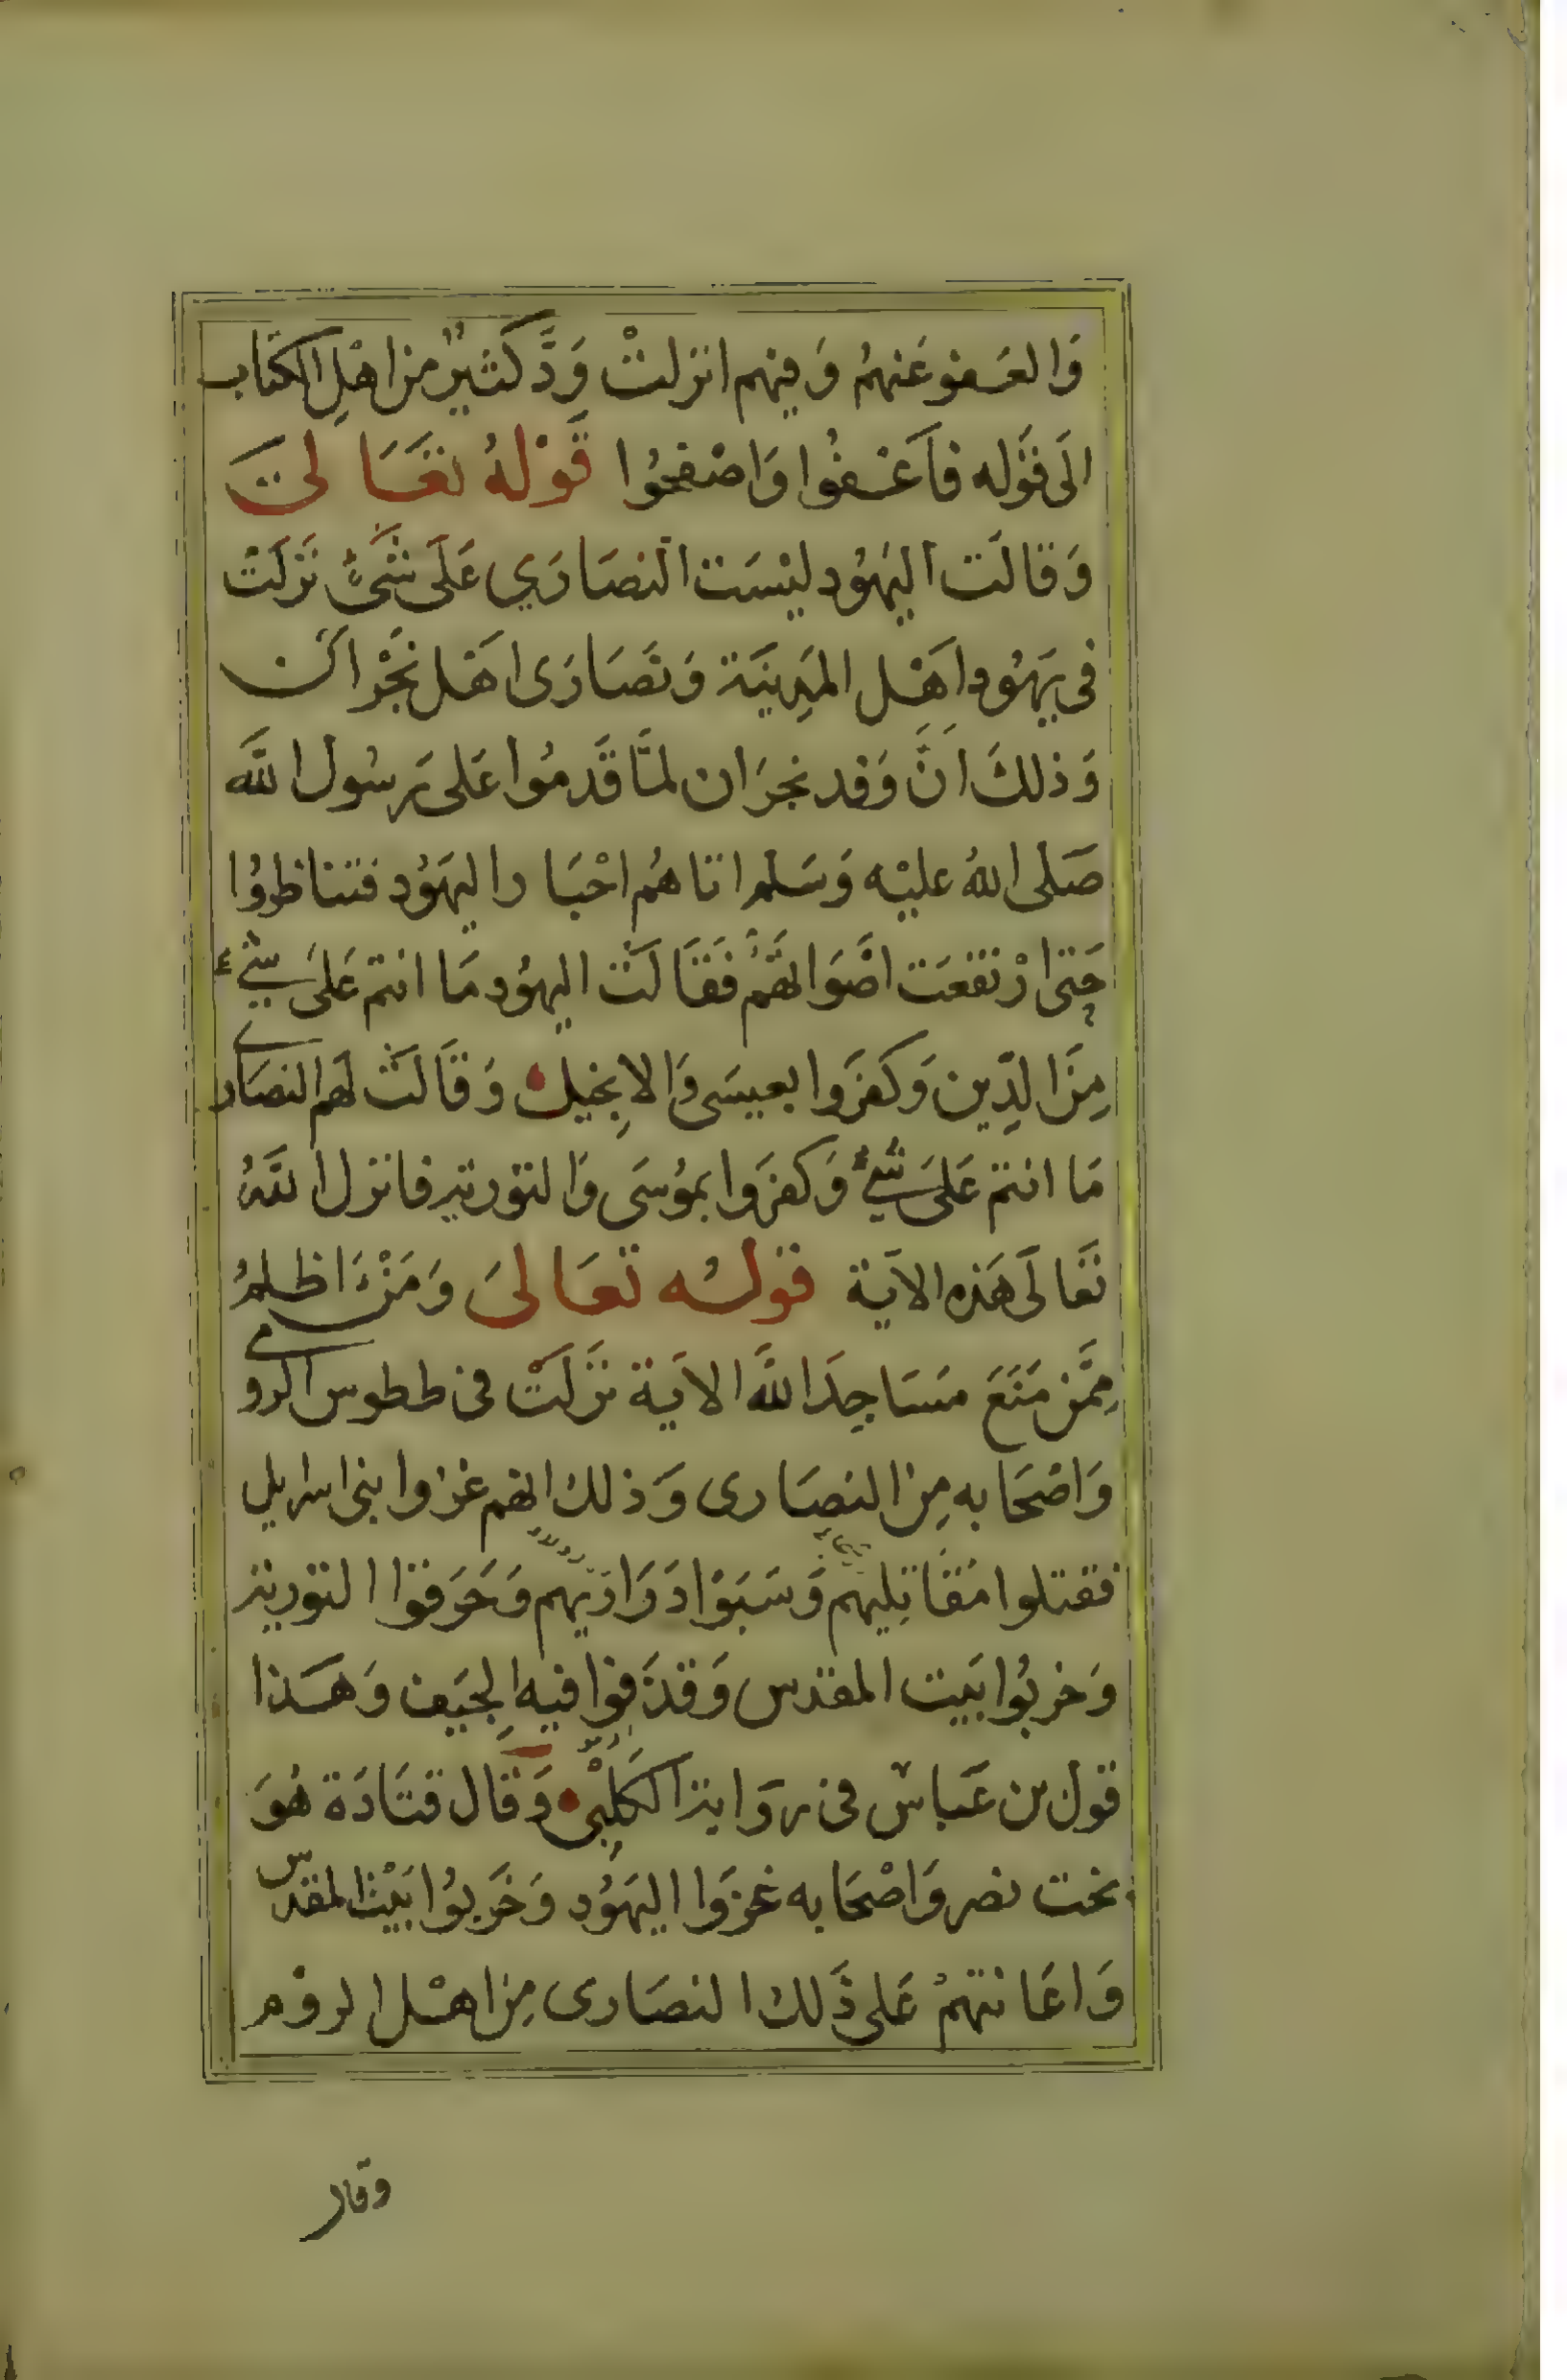 وَالعَفو عَنهُم وَفيهم انزلتْ وَدَّ كَثيرٌ من اهْلِ الكتاب
الَى قَوله فَاَعْفُوا وَاصْفحُوا قَوْلهُ تعَالىَ
وَقالَت اليَهُود ليْسَت النصَارَي عَلَى شَىْءٍ نَزلَتْ
فى يَهُود اهْل المَدِينَة وَنَصَارَى اهْل نَجْرَان
وَذلكَ انَّ وَفد نجرَان لمَّا قَدمُوا عَلى رَسُول اللَّه
صَلى اللهُ عليْه وَسَلم اتاهُم احْبَار اليَهُود فتناظرُوا
حَتى ارْتفعَت اصْوَاتهُمْ فَقَالَتْ اليهُود مَا انتم عَلىَ شيءٍ
مِنَ الدِّين وَكفَرَوا بعيسَى وَالاِنجيل وَقَالَتْ لهم النصَارى
مَا انتم عَلىَ شيءٍ وَكفرَوا بموُسَى وَالتوْريۃ فانزل اللَّهُ
تَعَالَى هَذه الآيَة قولُه تعَالىَ وَمَنْ اَظلمُ
مِمَّن مَنَعَ مَسَاجِدَ اللَّه الآيَة نَزَلَتْ فى ططوس الرومي
وَاصْحَابه مِن النصَارى وَذلك انهم غزوا بنى اسرايل
فقتلوا مُقَاتِليهم وَسَبَوْا ذَرَارَيهم وَحَرَقوْا التوريۃ
وَخربُوا بَيت المقدس وَقذَفوا فيه الجِيَف وَهَذا
قول بن عَباس فى روَايۃ الكَلِبْى وَقال قتَادَة هُوَ
بخت نصر وَاصْحَابه غزَوا اليَهُود وَخَربوُا بَيْت المقدس
وَاعَانتهُمْ عَلى ذَلك النصَارى مِن اهْل الروْم
وقال